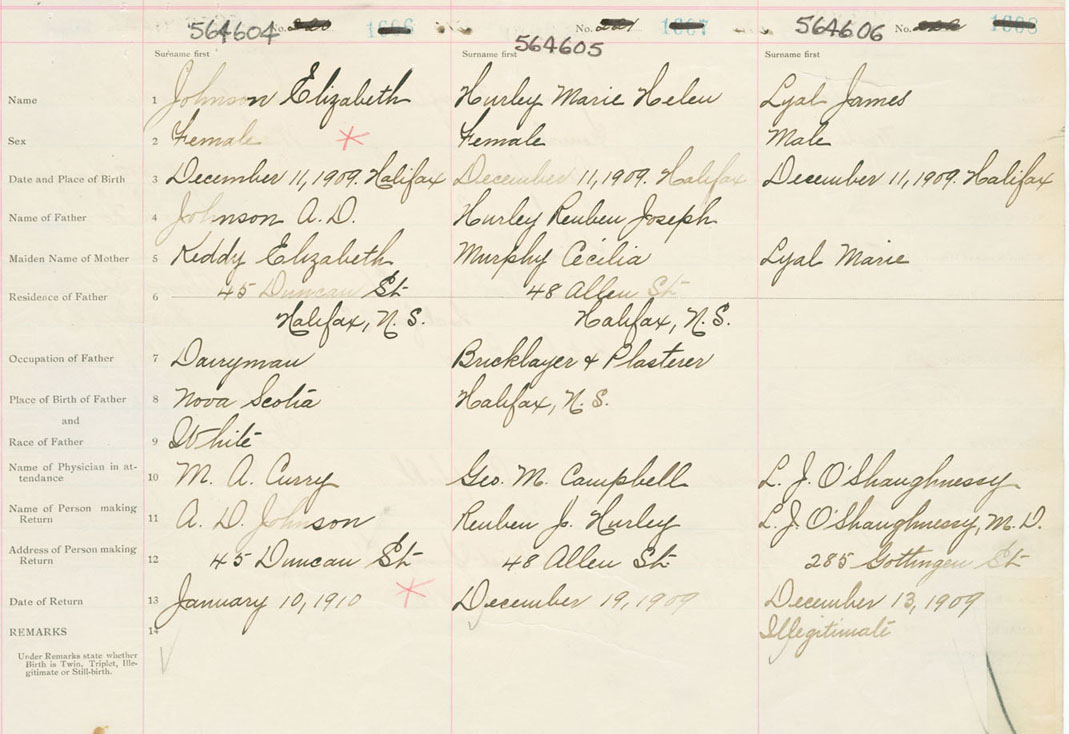 564604 No. 1606 564605 No. 221 1607 564606 No. 1608
Surname first Surname first Surname first
Name 1 Johnson Elizabeth Hurley Marie Helen Lyal James
Sex 2 Female Female Male
Date and Place of Birth 3 December 11, 1909. Halifax December 11, 1909. Halifax December 11, 1909. Halifax
Name of Father 4 Johnson A. D. Hurley Reuben Joseph
Maiden Name of Mother 5 Keddy Elizabeth Murphy Cecilia Lyal Marie
Residence of Father 6 45 Duncan St 48 Allen St
Halifax, N. S. Halifax, N. S.
Occupation of Father 7 Dairyman Bricklayer & Plasterer
Place of Birth of Father 8 Nova Scotia Halifax, N. S.
and
Race of Father 9 White
Name of Physician in at-
tendance 10 M. A. Curry Geo. M. Campbell L. J. O'Shaughnessy
Name of Person making
Return 11 A. D. Johnson Reuben J. Hurley L. J. O'Shaughnessy, M. D.
Address of Person making
Return 12 45 Duncan St 48 Allen St 285 Gottingen St
Date of Return 13 January 10, 1910 December 19, 1909 December 13, 1909
REMARKS 14 Illegitimate
Under Remarks state whether
Birth is Twin, Triplet, Ille-
gitimate or Still-birth.